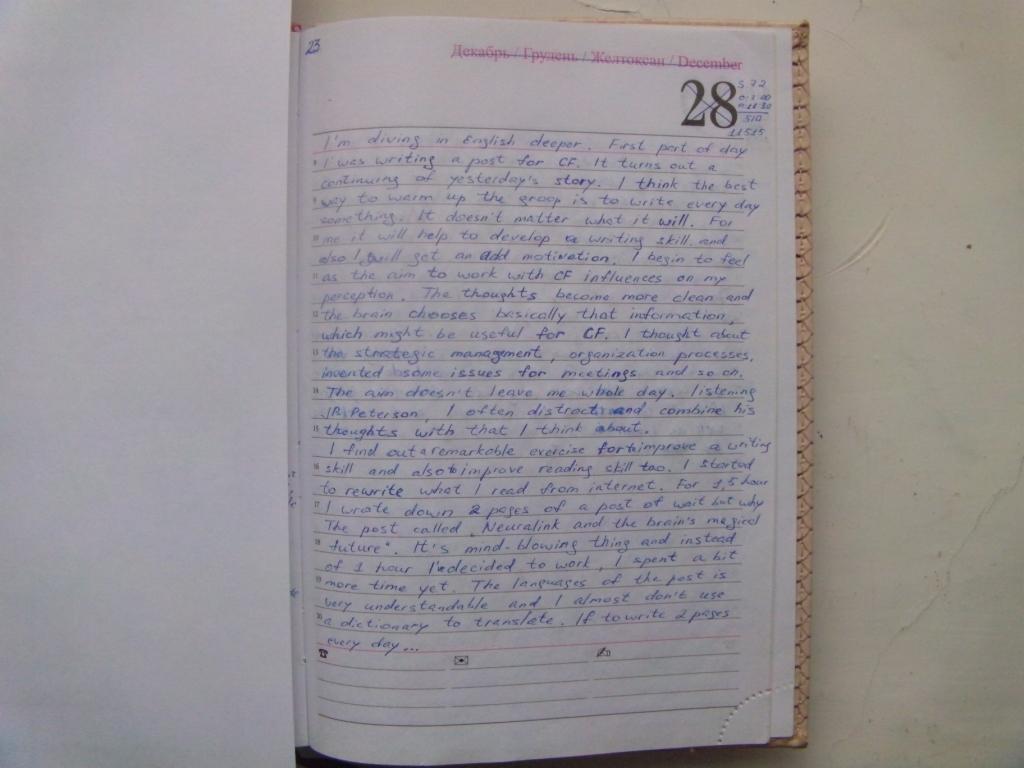 23
Декабрь / Грудень / Желтоксан / December
28
S 72
510
11515
I'm diving in English deeper. First part of day
I was writing a post for CF. It turns out a
continuing of yesterday's story. I think the best
way to warm up the groop is to write every day
something. It doesn't matter what it will. For
me it will help to develop a writing skill and
also I will get an add motivation. I begin to feel
as the aim to work with CF influences on my
perception. The thoughts become more clean and
the brain chooses basically that information,
which might be useful for CF. I thought about
the strategic management, organization processes,
invented some issues for meetings and so on.
The aim doesn't leave me whole day, listening
J.P. Peterson, I often distract and combine his
thoughts with that I think about.
I find out a remarkable exercise for to improve a writing
skill and also to improve reading skill too. I started
to rewrite what I read from internet. For 1,5 hour
I wrote down 2 pages of a post of wait but why
The post called „Neuralink and the brain's magical
future". It's mind-blowing thing and instead
of 1 hour I decided to work, I spent a bit
more time yet. The languages of the post is
very understandable and I almost don't use
a dictionary to translate. If to write 2 pages
every day...